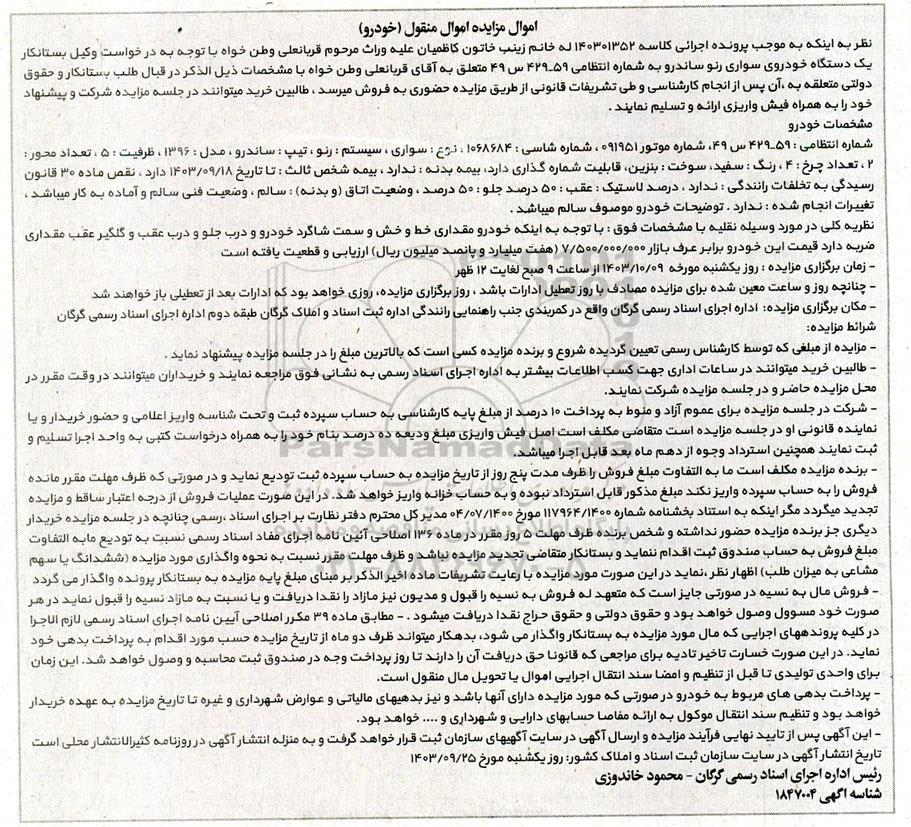 اموال مزایده اموال منقول (خودرو)
نظر به اینکه به موجب پرونده اجرائی کلاسه ۱۴۰۳۰۱۳۵۲ له خانم زینب خاتون کاظمیان علیه وراث مرحوم قربانعلی وطن خواه با توجه به درخواست وکیل بستانکار
یک دستگاه خودروی سواری رنو ساندرو به شماره انتظامی ۵۹_۴۲۹ س ۴۹ متعلق به آقای قربانعلی وطن خواه با مشخصات ذیل الذکر در قبال طلب بستانکار و حقوق
دولتی متعلقه به ،آن پس از انجام کارشناسی و طی تشریفات قانونی از طریق مزایده حضوری به فروش میرسد ، طالبین خرید میتوانند در جلسه مزایده شرکت و پیشنهاد
خود را به همراه فیش واریزی ارائه و تسلیم نمایند .
مشخصات خودرو
شماره انتظامی : ۵۹_۴۲۹ س ۴۹، شماره موتور ۰۹۱۹۵۱ ، شماره شاسی : ۱۰۶۸۶۸۴ ، نوع : سواری ، سیستم : رنو ، تیپ : ساندرو ، مدل : ۱۳۹۶ ، ظرفیت : ۵ ، تعداد محور :
۲ ، تعداد چرخ : ۴ ، رنگ : سفید، سوخت : بنزین، قابلیت شماره گذاری دارد، بیمه بدنه : ندارد ، بیمه شخص ثالث : تا تاریخ ۱۴۰۳/۰۹/۱۸ دارد ، نقص ماده ۳۰ قانون
رسیدگی به تخلفات رانندگی : ندارد ، درصد لاستیک : عقب : ۵۰ درصد جلو : ۵۰ درصد ، وضعیت اتاق (و بدنه) : سالم ، وضعیت فنی سالم و آماده به کار میباشد ،
تغییرات انجام شده : ندارد . توضیحات خودرو موصوف سالم میباشد .
نظریه کلی در مورد وسیله نقلیه با مشخصات فوق : با توجه به اینکه خودرو مقداری خط و خش و سمت شاگرد خودرو و درب جلو و درب عقب و گلگیر عقب مقداری
ضربه دارد قیمت این خودرو برابر عرف بازار ۷/۵۰۰/۰۰۰/۰۰۰ (هفت میلیارد و پانصد میلیون ریال) ارزیابی و قطعیت یافته است
- زمان برگزاری مزایده : روز یکشنبه مورخه ۱۴۰۳/۱۰/۰۹ از ساعت ۹ صبح لغایت ۱۲ ظهر
- چنانچه روز و ساعت معین شده برای مزایده مصادف با روز تعطیل ادارات باشد ، روز برگزاری مزایده، روزی خواهد بود که ادارات بعد از تعطیلی باز خواهند شد
- مکان برگزاری مزایده: اداره اجرای اسناد رسمی گرگان واقع در کمربندی جنب راهنمایی رانندگی اداره ثبت اسناد و املاک گرگان طبقه دوم اداره اجرای اسناد رسمی گرگان
شرائط مزایده:
- مزایده از مبلغی که توسط کارشناس رسمی تعیین گردیده شروع و برنده مزایده کسی است که بالاترین مبلغ را در جلسه مزایده پیشنهاد نماید .
- طالبین خرید میتوانند در ساعات اداری جهت کسب اطلاعات بیشتر به اداره اجرای اسناد رسمی به نشانی فوق مراجعه نمایند و خریداران میتوانند در وقت مقرر در
محل مزایده حاضر و در جلسه مزایده شرکت نمایند.
- شرکت در جلسه مزایده برای عموم آزاد و منوط به پرداخت ۱۰ درصد از مبلغ پایه کارشناسی به حساب سپرده ثبت و تحت شناسه واریز اعلامی و حضور خریدار و یا
نماینده قانونی او در جلسه مزایده است متقاضی مکلف است اصل فیش واریزی مبلغ ودیعه ده درصد بنام خود را به همراه درخواست کتبی به واحد اجرا تسلیم و
ثبت نمایند همچنین استرداد وجوه از دهم ماه بعد قابل اجرا میباشد.
- برنده مزایده مکلف است ما به التفاوت مبلغ فروش را ظرف مدت پنج روز از تاریخ مزایده به حساب سپرده ثبت تودیع نماید و در صورتی که ظرف مهلت مقرر مانده
فروش را به حساب سپرده واریز نکند مبلغ مذکور قابل استرداد نبوده و به حساب خزانه واریز خواهد شد. در این صورت عملیات فروش از درجه اعتبار ساقط و مزایده
تجدید میگردد مگر اینکه به استناد بخشنامه شماره ۱۱۷۹۶۴/۱۴۰۰ مورخ ۰۴/۰۷/۱۴۰۰ مدیر کل محترم دفتر نظارت بر اجرای اسناد ،رسمی چنانچه در جلسه مزایده خریدار
دیگری جز برنده مزایده حضور نداشته و شخص برنده ظرف مهلت ۵ روز مقرر در ماده ۱۳۶ اصلاحی آئین نامه اجرای مفاد اسناد رسمی نسبت به تودیع مابه التفاوت
مبلغ فروش به حساب صندوق ثبت اقدام ننماید و بستانکار متقاضی تجدید مزایده نباشد و ظرف مهلت مقرر نسبت به نحوه واگذاری مورد مزایده (ششدانگ یا سهم
مشاعی به میزان طلب) اظهار نظر ،نماید در این صورت مورد مزایده با رعایت تشریفات ماده اخیر الذکر بر مبنای مبلغ پایه مزایده به بستانکار پرونده واگذار می گردد
- فروش مال به نسیه در صورتی جایز است که متعهد له فروش به نسیه را قبول و مدیون نیز مازاد را نقدا دریافت و یا نسبت به مازاد نسیه را قبول نماید در هر
صورت خود مسوول وصول خواهد بود و حقوق دولتی و حقوق حراج نقدا دریافت میشود . - مطابق ماده ۳۹ مکرر اصلاحی آیین نامه اجرای اسناد رسمی لازم الاجرا
در کلیه پروندههای اجرایی که مال مورد مزایده به بستانکار واگذار می شود، بدهکار میتواند ظرف دو ماه از تاریخ مزایده حسب مورد اقدام به پرداخت بدهی خود
نماید. در این صورت خسارت تاخیر تادیه برای مراجعی که قانونا حق دریافت آن را دارند تا روز پرداخت وجه در صندوق ثبت محاسبه و وصول خواهد شد. این زمان
برای واحدی تولیدی تا قبل از تنظیم و امضا سند انتقال اجرایی اموال یا تحویل مال منقول است.
- پرداخت بدهی های مربوط به خودرو در صورتی که مورد مزایده دارای آنها باشد و نیز بدهیهای مالیاتی و عوارض شهرداری و غیره تا تاریخ مزایده به عهده خریدار
خواهد بود و تنظیم سند انتقال موکول به ارائه مفاصا حسابهای دارایی و شهرداری و .... خواهد بود.
- این آگهی پس از تایید نهایی فرآیند مزایده و ارسال آگهی در سایت آگهیهای سازمان ثبت قرار خواهد گرفت و به منزله انتشار آگهی در روزنامه کثیرالانتشار محلی است
تاریخ انتشار آگهی در سایت سازمان ثبت اسناد و املاک کشور: روز یکشنبه مورخ ۱۴۰۳/۰۹/۲۵
رئیس اداره اجرای اسناد رسمی گرگان - محمود خاندوزی
شناسه آگهی ۱۸۴۷۰۰۴
ParsNamadData